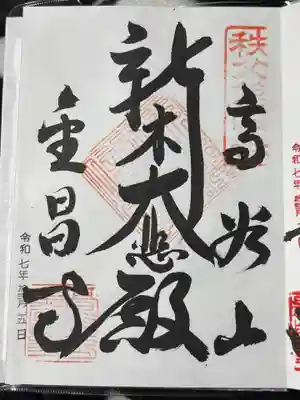 秩父
高谷山
新木大悲殿
金昌寺
令和七年 月五日
令和七年